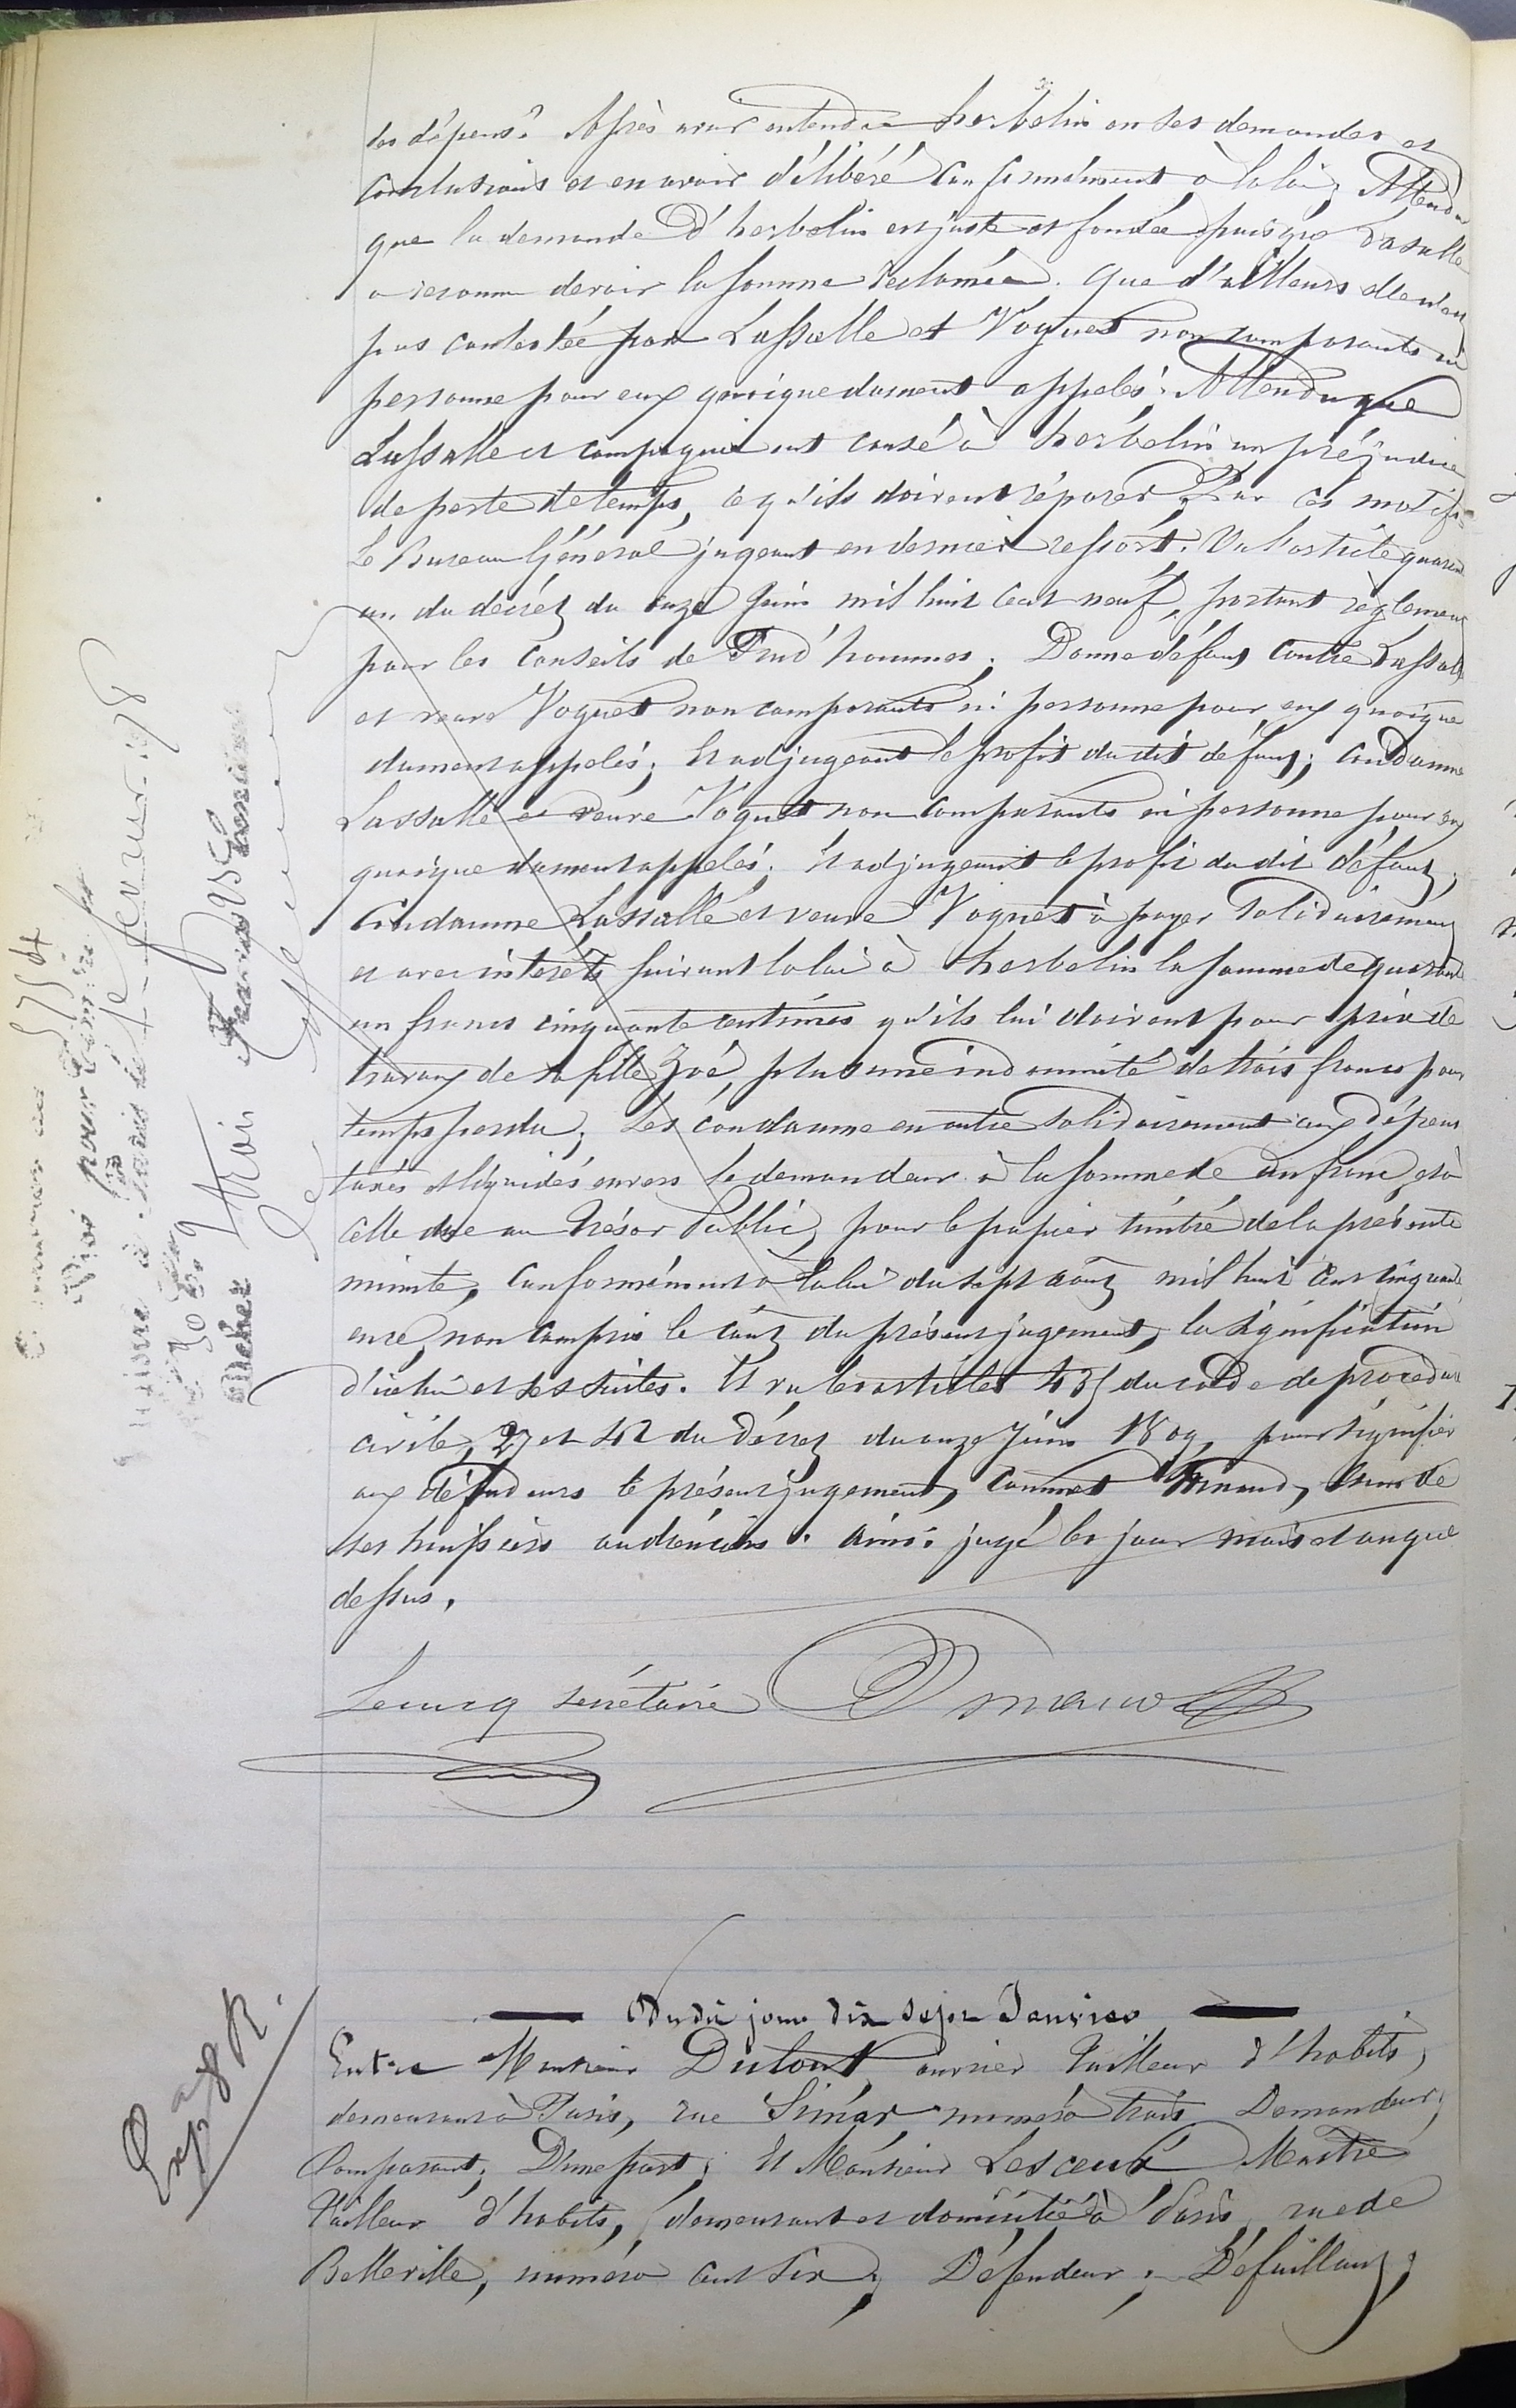 les dépens. Après avoir entendu herbelin en ses demandes et
conclusions et en avoir délibéré conformément à la loi; Attendu
que la demande d'herbelin est juste et fondée puisque Lasalle
a reconnu devoir la somme reclamée. que d'ailleurs elle n'est
pas contestée par Lassalle et Voguet non comparants ni
personne pour eux quoique dument appelés; Attendu que
Lassalle et compagnie ont causé à herbelin un préjudice
de perte de temps, ce qu'ils doivent réparer. Par ces motifs
Le Bureau Général jugeant en dernier ressort. Vu l'article quarante
un du décret du onze juin mil huit cent neuf, portant règlement
pour les conseils de Prud'hommes; Donne défaut contre Lassalle
et veuve Voguet non comparants ni personne pour eux quoique
dument appelés; Et adjugeant le profit du dit défaut; condamne
Lassalle et veuve Voguet non comparants ni personne pour eux
quoique dument appelés; Et adjugeant le profit du dit défaut;
Condamne Lassalle et veuve Voguet à payer solidairement
et avec intérêts suivant la loi à herbelin la somme de quarante
un francs cinquante centimes qu'ils lui doivent pour prix de
travaux de sa fille Zoé, plus une indemnité de trois francs pour
temps perdu; Les condamne en outre solidairement aux dépens
taxés et liquidés envers le demandeur à la somme de un franc, et à
celle due au Trésor Public, pour le papier timbré de la présente
minute, conformément à la loi du sept août mil huit cent cinquante
non compris le coût du présent jugement, la signification
d'icelui et ses suites. Et vu les articles 435 du code de procédure
civile, 27 et 42 du décret du onze Juin 1809, pour signifier
aux défendeurs le présent jugement, commet l'un de
ses huissiers audienciers. Ainsi jugé les jour mois et an que
dessus.
Lecucq secrétaire
Dudit jour dix sept Janvier
Entre Monsieur Dulout ouvrier tailleur d'habits,
demeurant à Paris, rue Simar numéro trois Demandeur;
Comparant; D'une part; Et Monsieur Maître
Tailleur d'habits, demeurant et domicilié à Paris, rue de
Belleville, numéro cent six; Défendeur; Défaillant;